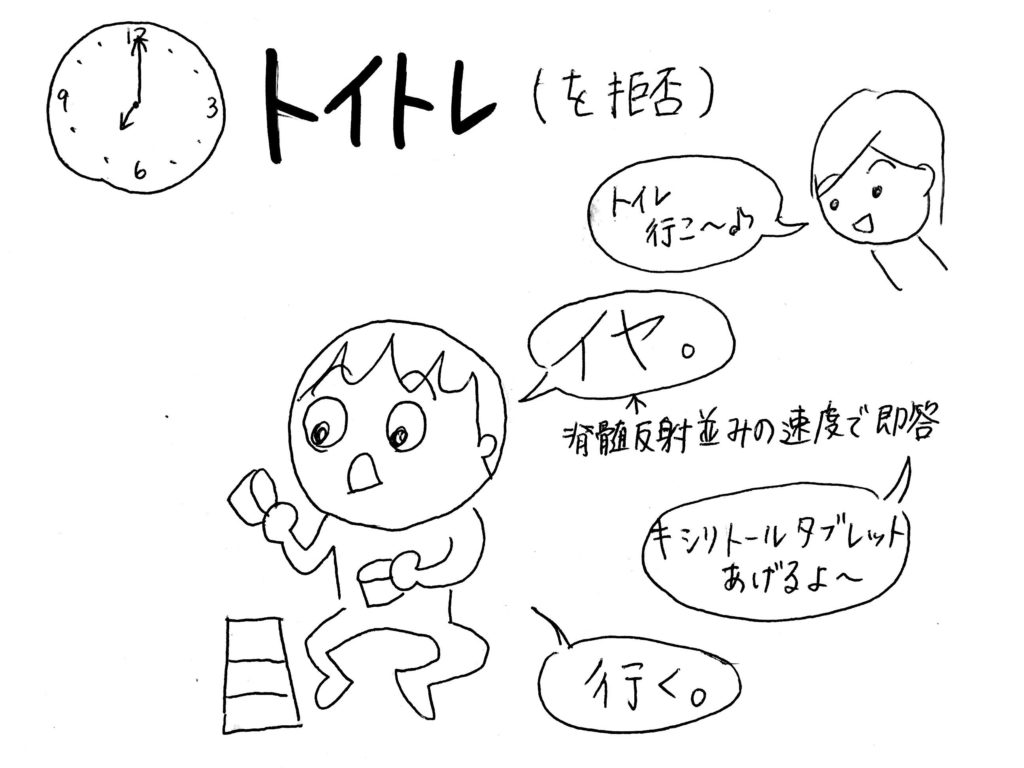 12
9
3
6
トイトレ(を拒否)
トイレ
行こ～♪
イヤ。
↑
脊髄反射並みの速度で即答
キシリトールタブレット
あげるよ～
行く。